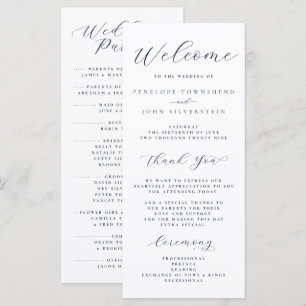 Wedding
Party
PARENTS OF
JAMES & MAR
PARENTS OF
ABRAHAM & JE
MAID OF
JUNE GA
BEST
ROBIN
BRIDES
BROOKLYN
NATALIE
LETTY SIL
BROOKE
GROO
DAVID SIL
NEV SIL
PETER
VINCENT
FLOWER GIRL &
CAMILLA T
& F
USH
TROY
OFFIC
JACOB
Welcome
TO THE WEDDING OF
PENELOPE TOWNSHEND
and
JOHN SILVERSTEIN
SATURDAY
THE SIXTEENTH OF JUNE
TWENTY TWENTY NINE
Thank You
WE WANT TO EXPRESS OUR
HEARTFELT APPRECIATION TO YOU
FOR ATTENDING TODAY
AND A SPECIAL THANKS TO
OUR PARENTS FOR THEIR
LOVE AND SUPPORT
AND FOR MAKING THIS DAY
EXTRA SPECIAL.
Ceremony
PROCESSIONAL
PREFACE
READING
EXCHANGE OF VOWS & RINGS
RECESSIONAL